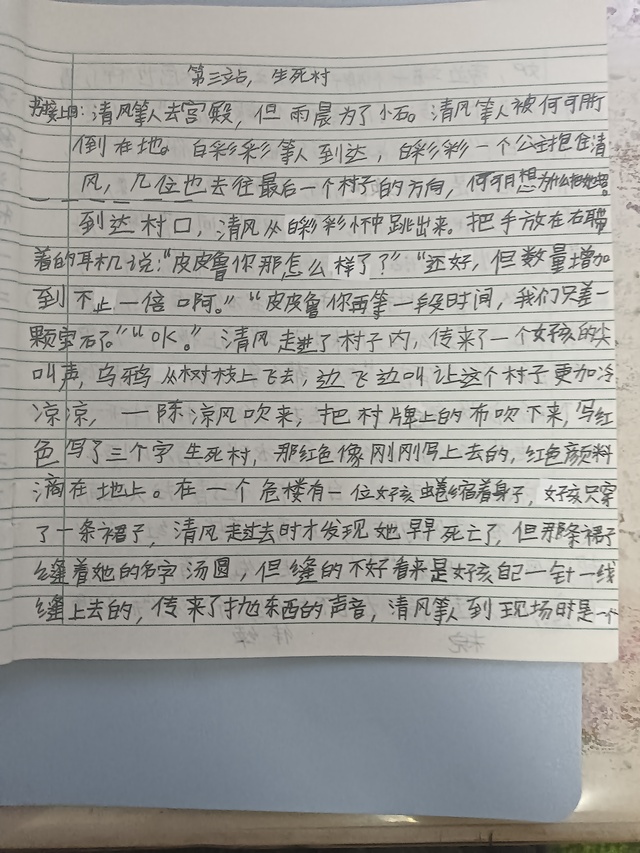 第三站，生死村
书接上回：清风等人去宫殿，但雨晨为了小石。清风等人被何可所
倒在地。白彩彩等人到达，白彩彩一个公主抱住清
风，几位也去往最后一个村子的方向，何可月想为什么把她
到达村口，清风从白彩彩怀中跳出来。把手放在右聪
着的耳机说：“皮皮鲁你那怎么样了？”“还好，但数量增加
到不止一倍啊。”“皮皮鲁你再等一段时间，我们只差一
颗宝石了。”“OK。”清风走进了村子内，传来了一个女孩的尖
叫声，乌鸦从树枝上飞去，边飞边叫让这个村子更加冷
凉凉，一陈凉风吹来，把村牌上的布吹下来，写红
色写了三个字生死村，那红色像刚刚写上去的，红色颜料
滴在地上。在一个危楼有一位女孩蜷缩着身子，女孩只穿
了一条裙子，清风走过去时才发现她早早死亡了，但那条裙子
缝着她的名字汤圆，但缝的不好看来是女孩自己一针一线
缝上去的，传来了抛东西的声音，清风等人到现场时是一个